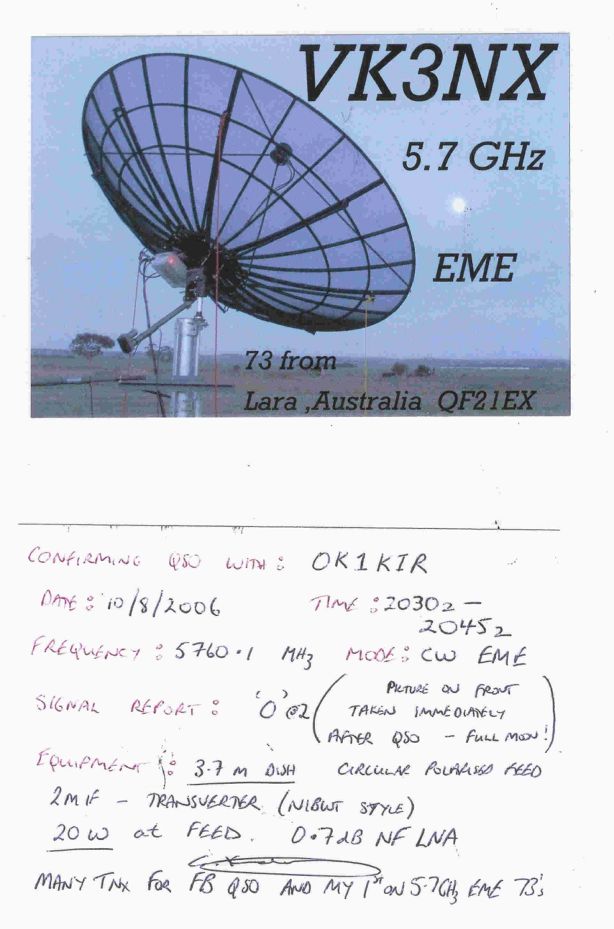 VK3NX
5.7 GHz
EME
73 from
Lara ,Australia QF21EX
CONFIRMING QSO WITH : OK1KIR
DATE : 10/8/2006 TIME : 2030z –
2045z
FREQUENCY : 5760.1 MHz MODE : CW EME
SIGNAL REPORT : 'O' @2 (PICTURE ON FRONT
TAKEN IMMEDIATELY
AFTER QSO – FULL MOON!)
EQUIPMENT : 3.7 m DISH CIRCULAR POLARISED FEED
2M IF – TRANSVERTER (N1BWT STYLE)
20 W at FEED. 0.7dB NF LNA
MANY TNX FOR FB QSO AND MY 1ST ON 5.7GHz EME 73's